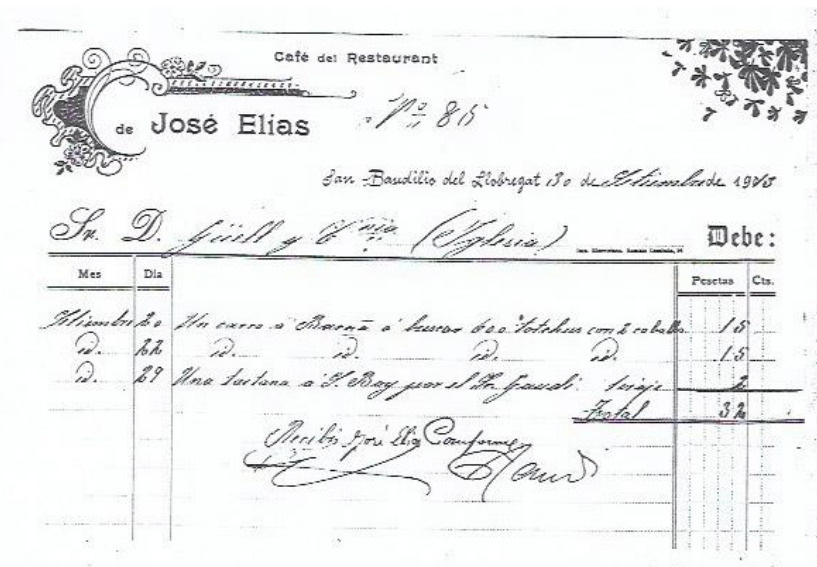 Café del Restaurant
de José Elías
Nº 85
San Baudilio del Llobregat 30 de Setiembre de 1913
Sr. D. Güell y Cnia (Iglesia) Debe:
Mes Dia Pesetas Cts.
Setiembre 20 Un carro a Barna a buscar 600 totchus con 2 caballs 15
id. 22 id. id. id. id. 15
id. 29 Una tartana a S. Boy por el Sr. Gaudi 1 viaje 2
Total 32
Recibí José Elias Comforme